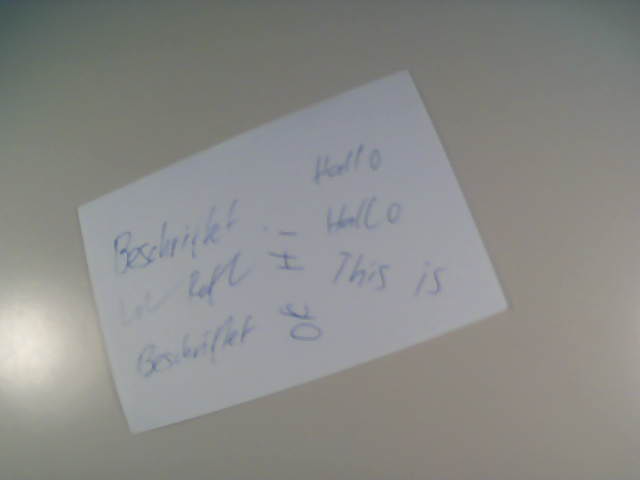 Hallo
Beschriftet Hallo
Lol Rofl This is
Beschriftet